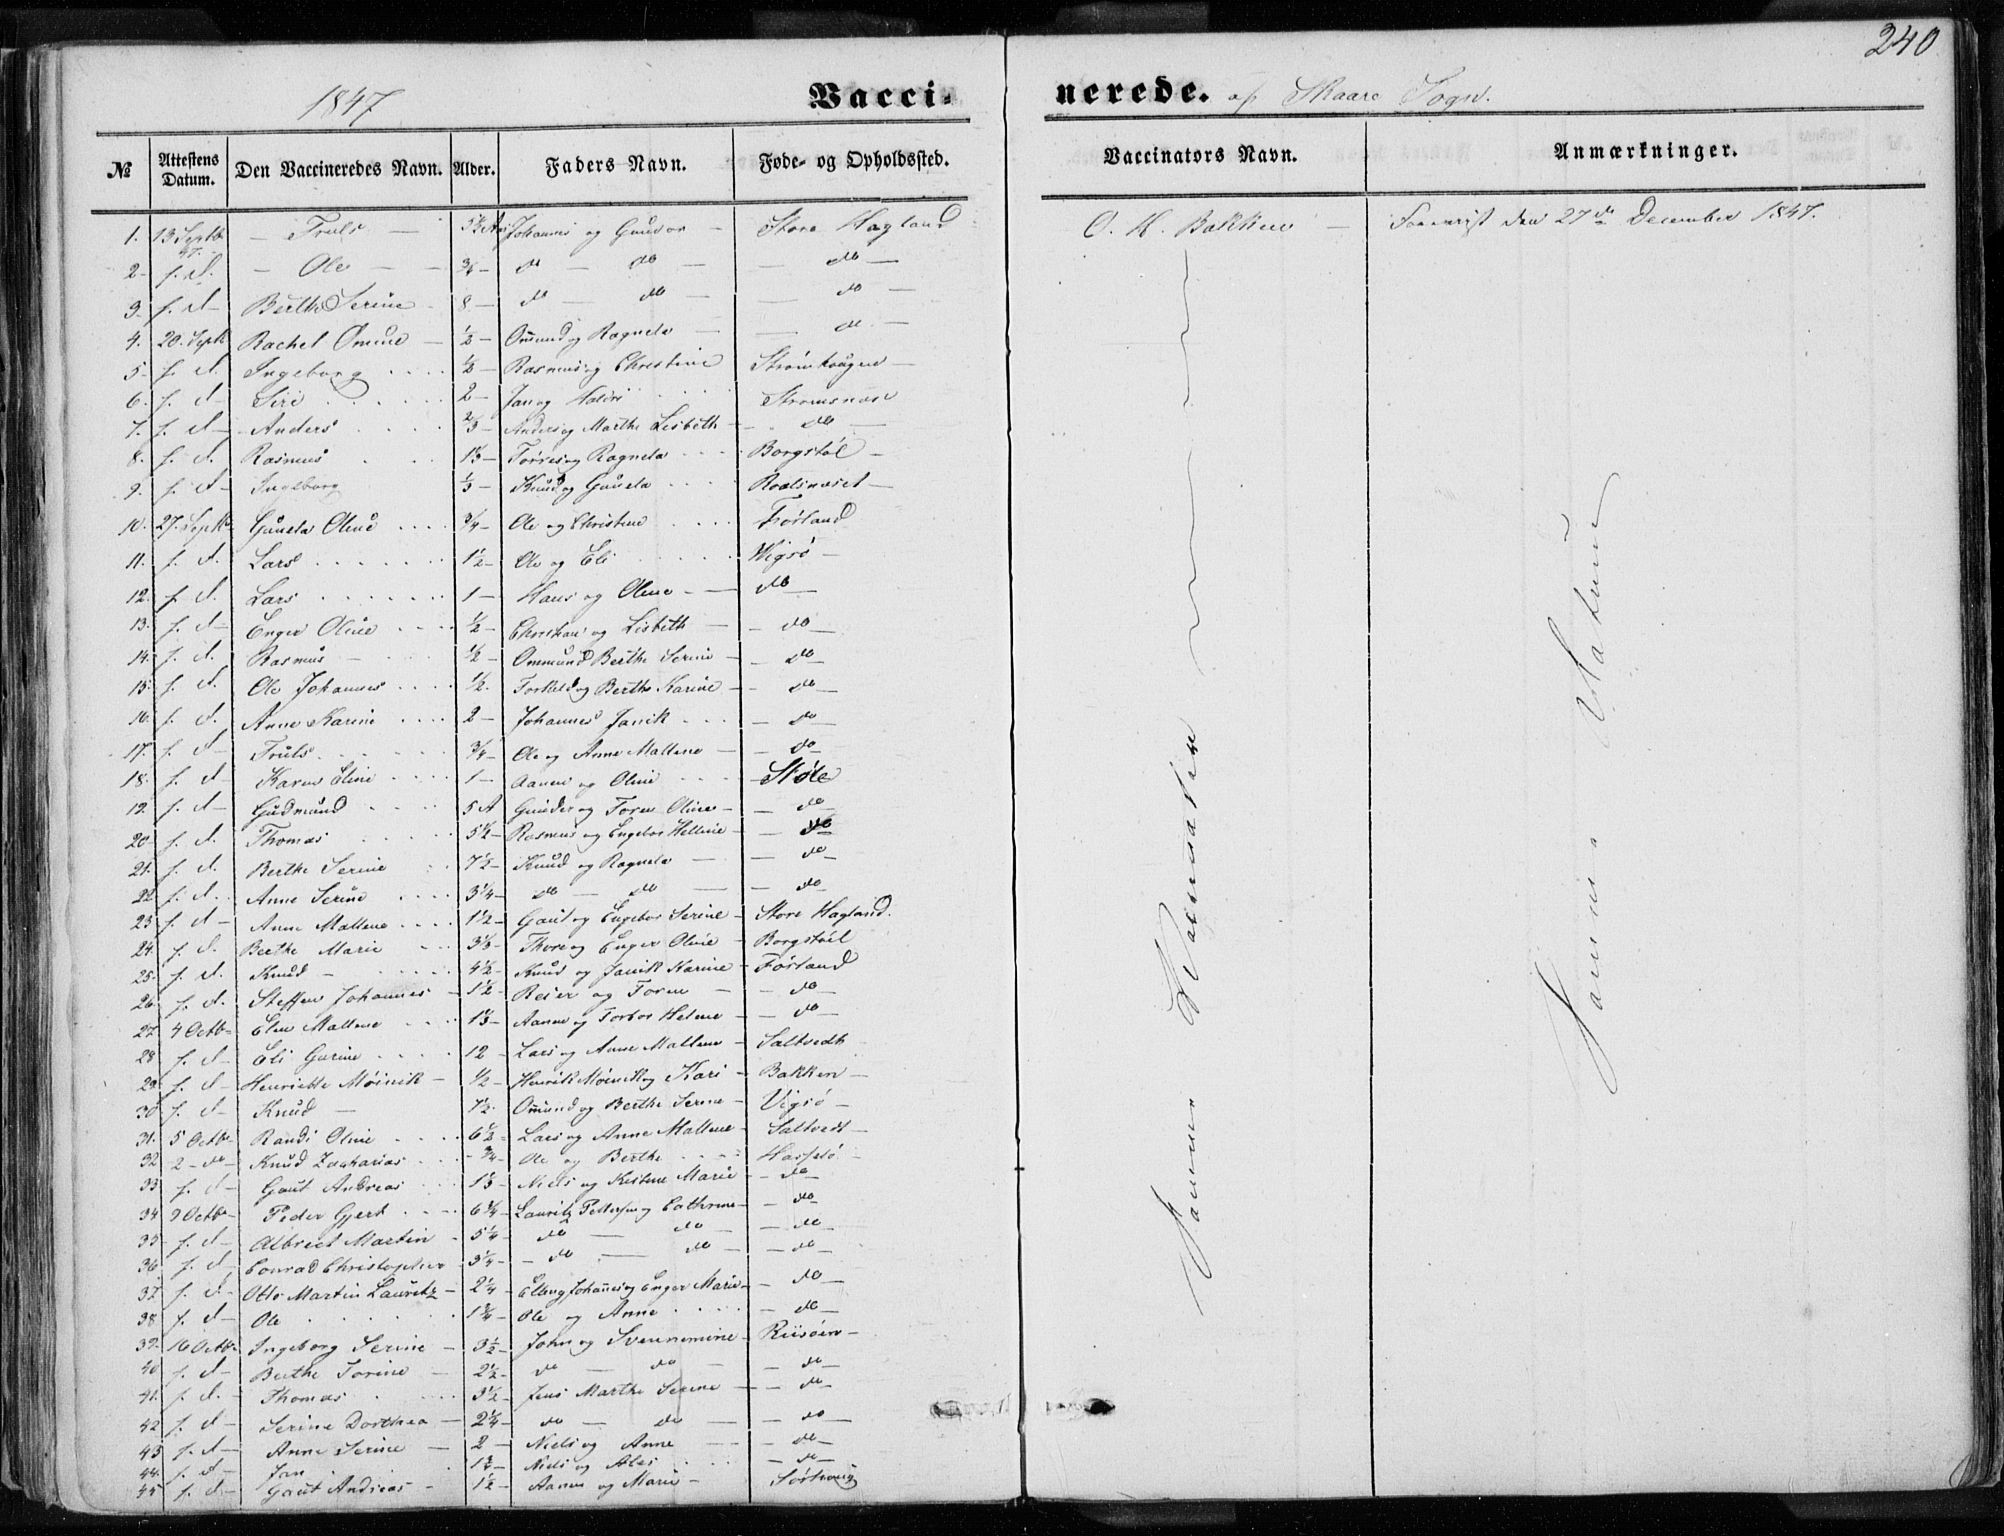 240
1847
Vacci- nerede. af Skaare Sogn.
№ Attestens Datum. Den Vaccineredes Navn. Alder. Faders Navn. Føde- og Opholdssted. Vaccinators Navn. Anmærkninger.
1. 13 Septb 47. — Truls — 5½ A Johannes og Gunvor — Store Hagland O. H. Bakken — den 27de December 1847.
2 — f. d. — Ole — ¾ — do — do — — do —
3. f. d — Berthe Serine 8 — do — do — do —
4. 20. Septb Rachel Omine — ½ — Omund og Ragnela — do. —
5. f. d. Ingeborg ½ — Rasmus og Christine
6. f. d — Siri 2 — Jan og Stromsnæs
7. f. d — Anders ⅔ — Anders og Marthe Lisbeth — do —
8. f. d. Rasmus Torres og Ragnela Borgstøl —
9. f. d — Ingeborg ⅓ — Knud og Gunela
10. 27. Septb Gunela Oline ¾ — Ole og Christine Førland
11. f. d. Lars 1½ — Ole og Eli Vigsø —
12. f. d. Lars 1 — Hans og Oline — do —
13. f. d — Enger Oline ½ — Christian og Lisbeth — — do —
14. f. d. Rasmus — ½ — Ommund Berthe Serine — — do —
15. f. d. Ole Johannes ½. Torkeld og Berthe Karine — — do —
16. f. d. Anne Karine 2 — Johannes Janik — do —
17. f. d — Truls ¾ — Ole og Anne Mallene — — do —
18. f. d — Karen Eline 1 — Aanen og Oline — Støle
19. f. d — Gudmund 5 A Gunder og Toren Oline — — do —
20 — f. d. Thomas 5½ — Rasmus og Engebor Helline — — do
21. f. d. Berthe Serine 7½ — Knud og Ragnela — — do —
22. f. d. Anne Serine 3¼ — do — do — — do —
23. f. d — Anne Mallene 1½ — Gaut og Engebor Serine — Store Hagland.
24. f. d. Berthe Marie 3⅓ — Thore og Enger Oline — Borgstøl
25. f. d. Knud — 4½ — Knud og Janik Karine — Førland
26. f. d. Steffen Johannes — 1½ — Reier og Toren — — do —
27. 4 Octb — Elen Mallene 1⅓ — Aanen og Torbor Helene — — do —
28. f. d — Eli Gurine 12 — Lars og Anne Mallene — Saltvedt
29. f. d — Henriette Møinik — ½ — Henrik Møinik og Kari — Bakken —
30 f. d — Knud — 7½. Omund og Berthe Serine — Vigsø —
31. 5 Octb Randi Oline 6½ — Lars og Anne Mallene — Saltvedt —
32 2 — do — Knud Zacharias — ¾ — Ole og Berthe
33 f. d — Gaut Andreas 1⅓ — Niels og Kistene Marie — — do —
34 9 Octb — Peder Gjert 6¾ — Lauritz Pettersen og Cathrine — — do —
35. f. d — Albrect Martin — 5¼ — do — do — — do —
36. f. d — Conrad Christopher 3¼ — — do — do — — do —
37. f. d — Otto Martin Lauritz — 2¼ — Elling Johannes og Enger Marie — — do —
38. f. d — Ole 1¾ — Ole og Anne — do —
39. 16 Octb. Ingeborg Serine — 3½ — John og Svennemine — Riisøen —
40 f. d — Berthe Torine 2½ — do — do — — do —
41. f. d. — Thomas 3½ — Jens Marthe Serine — — do —
42 f. d — Serine Dorthea — 2¼ — do — do — — do —
43 f. d — Anne Serine — 2 — Niels og Anne — do —
44. f. d — Jan Niels og — do —
45 f. d — Gaut Andreas — 1½ — Aanen og Marie —
Samme
Samme Datum